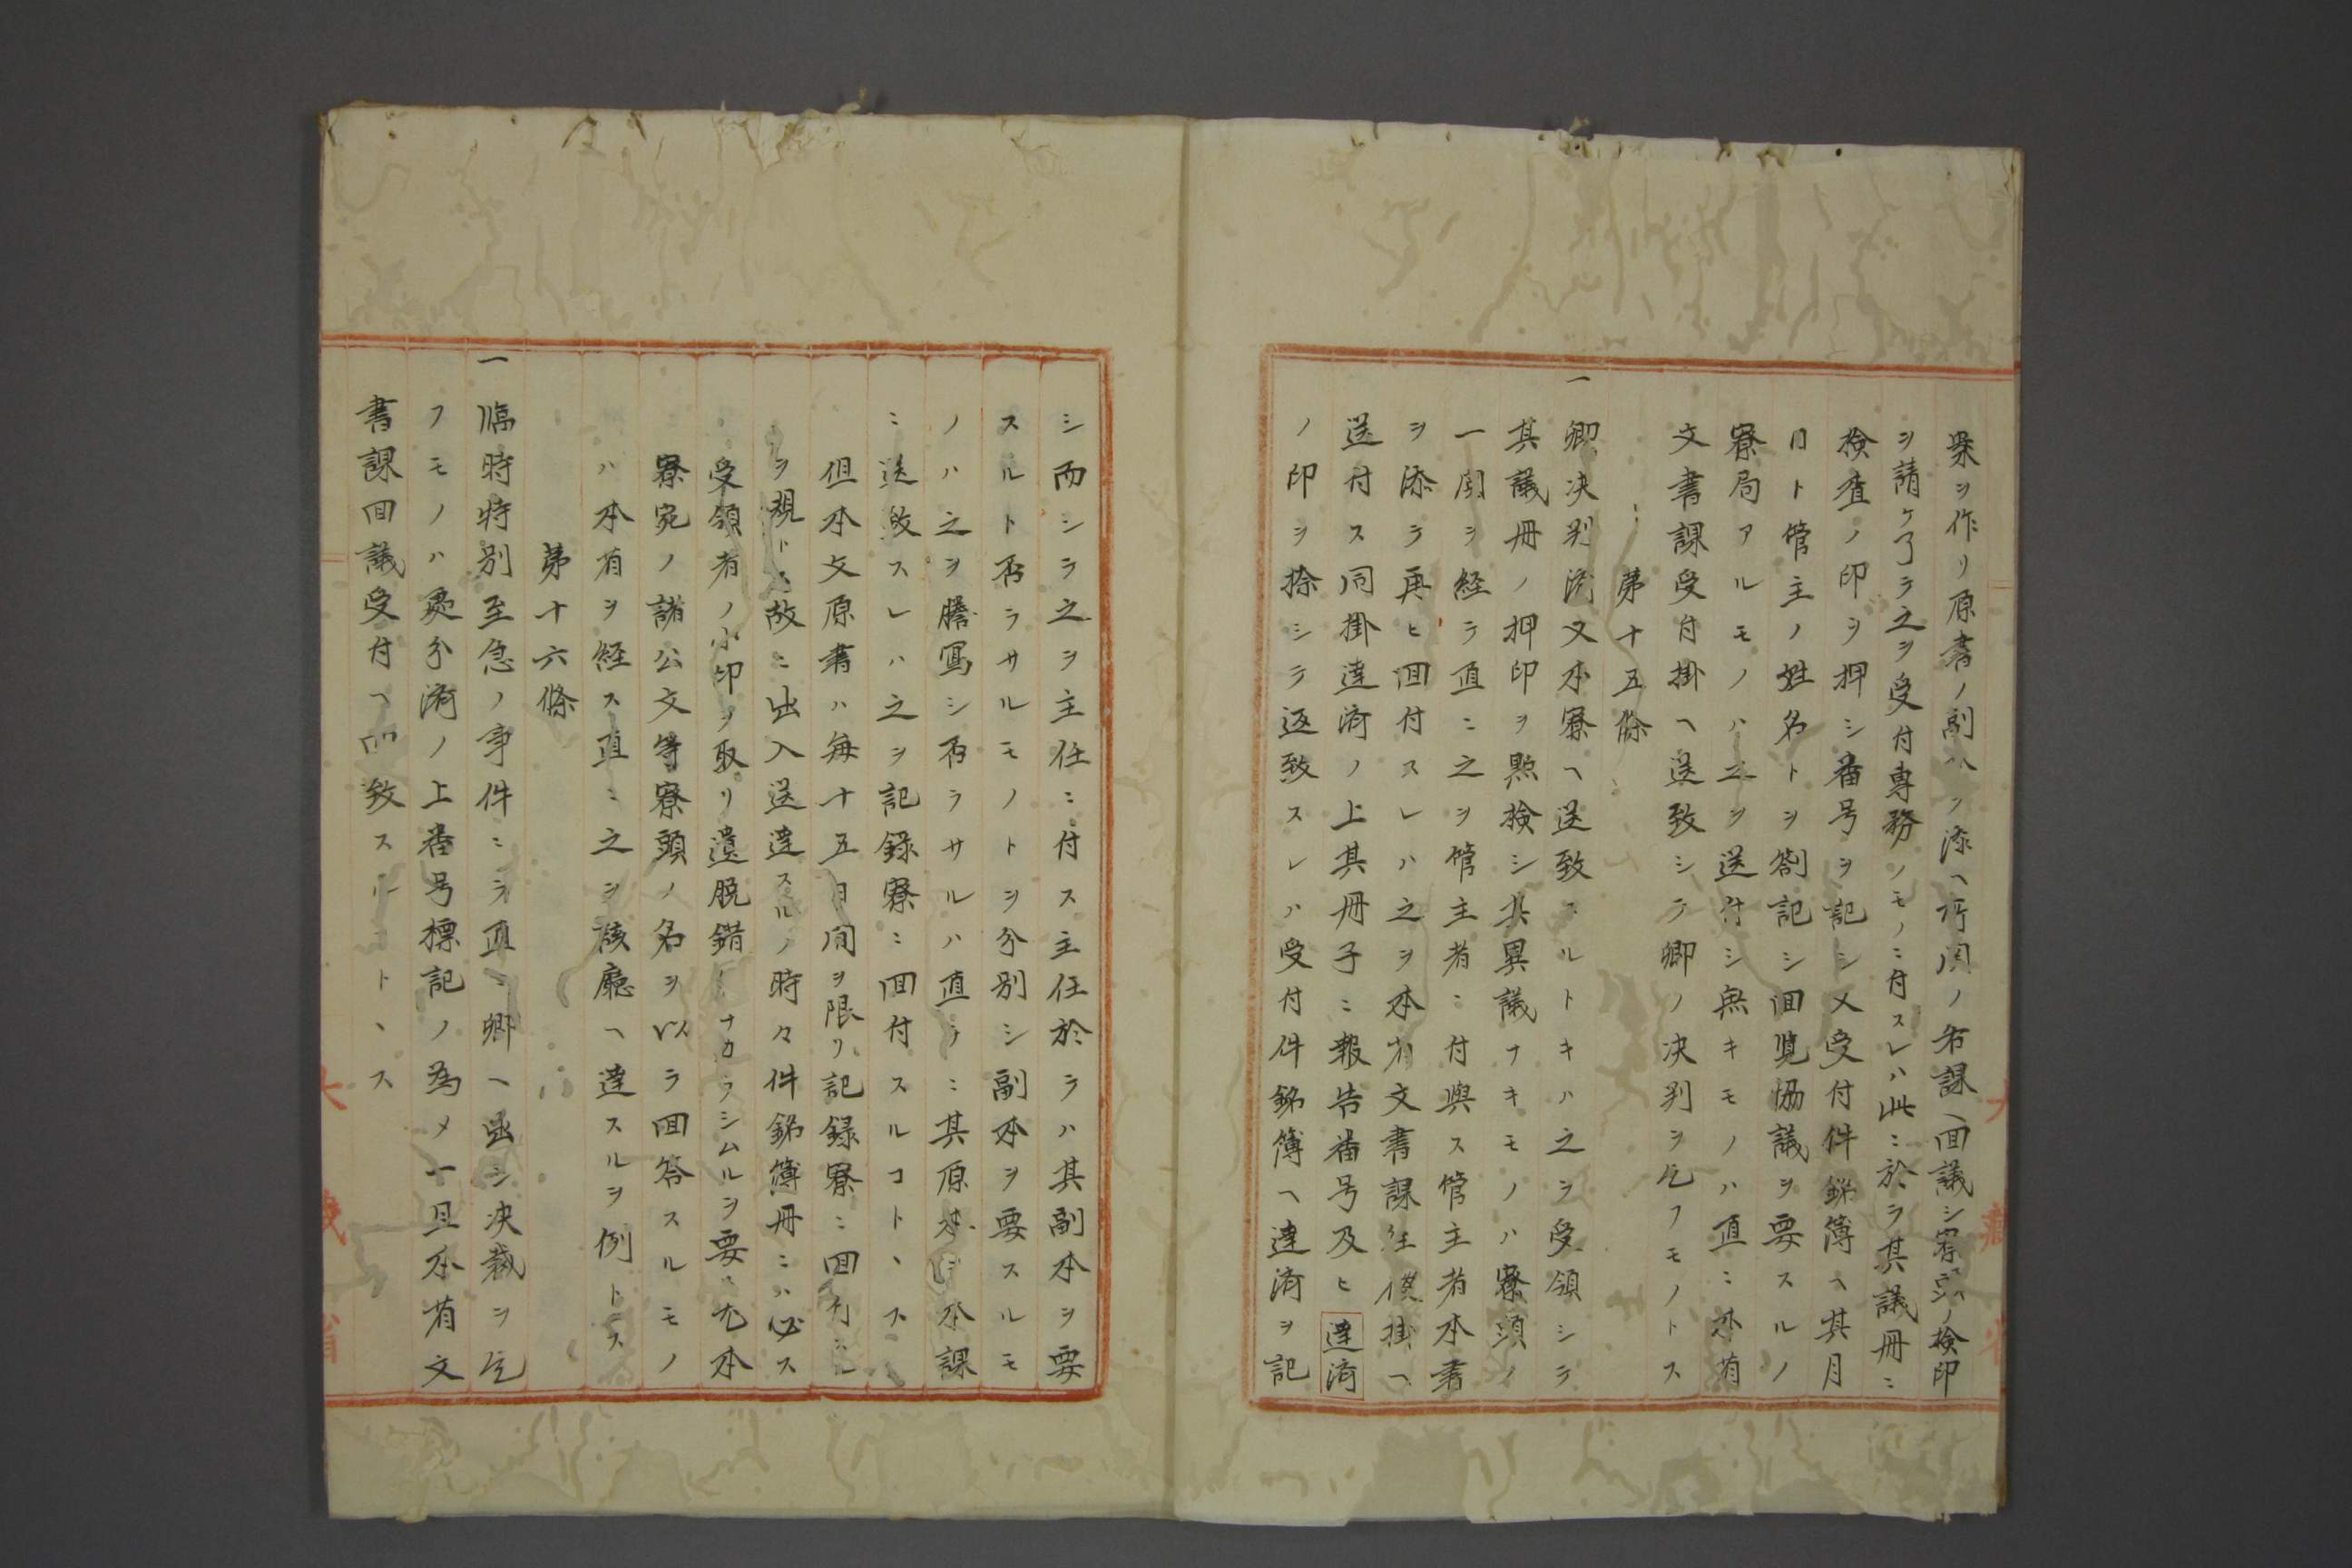 案ヲ作リ原書ノ副ヘヲ添ヘ所関ノ各課ヘ回議シ寮頭ノ検印
ヲ請ケ了テ之ヲ受付専務ノモノニ付スレハ此ニ於テ其議冊ニ
検査ノ印ヲ押シ番号ヲ記シ又受付件銘簿ヘ其月
日ト管主ノ姓名トヲ劄記シ回覧協議ヲ要スルノ
寮局アルモノハ之ヲ送付シ無キモノハ直ニ本省
文書課受付掛ヘ送致シテ卿ノ決判ヲ乞フモノトス
第十五條
一卿決判済又本寮ヘ送致スルトキハ之ヲ受領シテ
其議冊ノ押印ヲ點検シ其異議ナキモノハ寮頭ノ
一閲ヲ経テ直ニ之ヲ管主者ニ付與ス管主者本書
ヲ添テ再ヒ回付スレハ之ヲ本省文書課往復掛ヘ
送付ス同掛達済ノ上其冊子ニ報告番号及ヒ達済
ノ印ヲ捺シテ返致スレハ受付件銘簿ヘ達済ヲ記
シ而シテ之ヲ主任ニ付ス主任於テハ其副本ヲ要
スルト否ラサルモノトヲ分別シ副本ヲ要スルモ
ノハ之ヲ謄寫シ否ラサルハ直チニ其原本ヲ本課
ニ送致スレハ之ヲ記録寮ニ回付スルコトヽス
但本文原書ハ毎十五日間ヲ限リ記録寮ニ回付スル
ヲ規トス故ニ出入送達スルノ時々件銘簿冊ニハ必ス
受領者ノ小印ヲ取リ遺脱錯ナカラシムルヲ要ス尤本
寮宛ノ諸公文等寮頭ノ名ヲ以テ回答スルモノ
ハ本省ヲ経ス直ニ之ヲ該廳ヘ達スルヲ例トス
第十六條
一臨時特別至急ノ事件ニシテ直ニ卿ヘ出シ決裁ヲ乞
フモノハ處分済ノ上番号標記ノ為メ一旦本省文
書課回議受付ヘ回致スルコトヽス
大藏省
大藏省